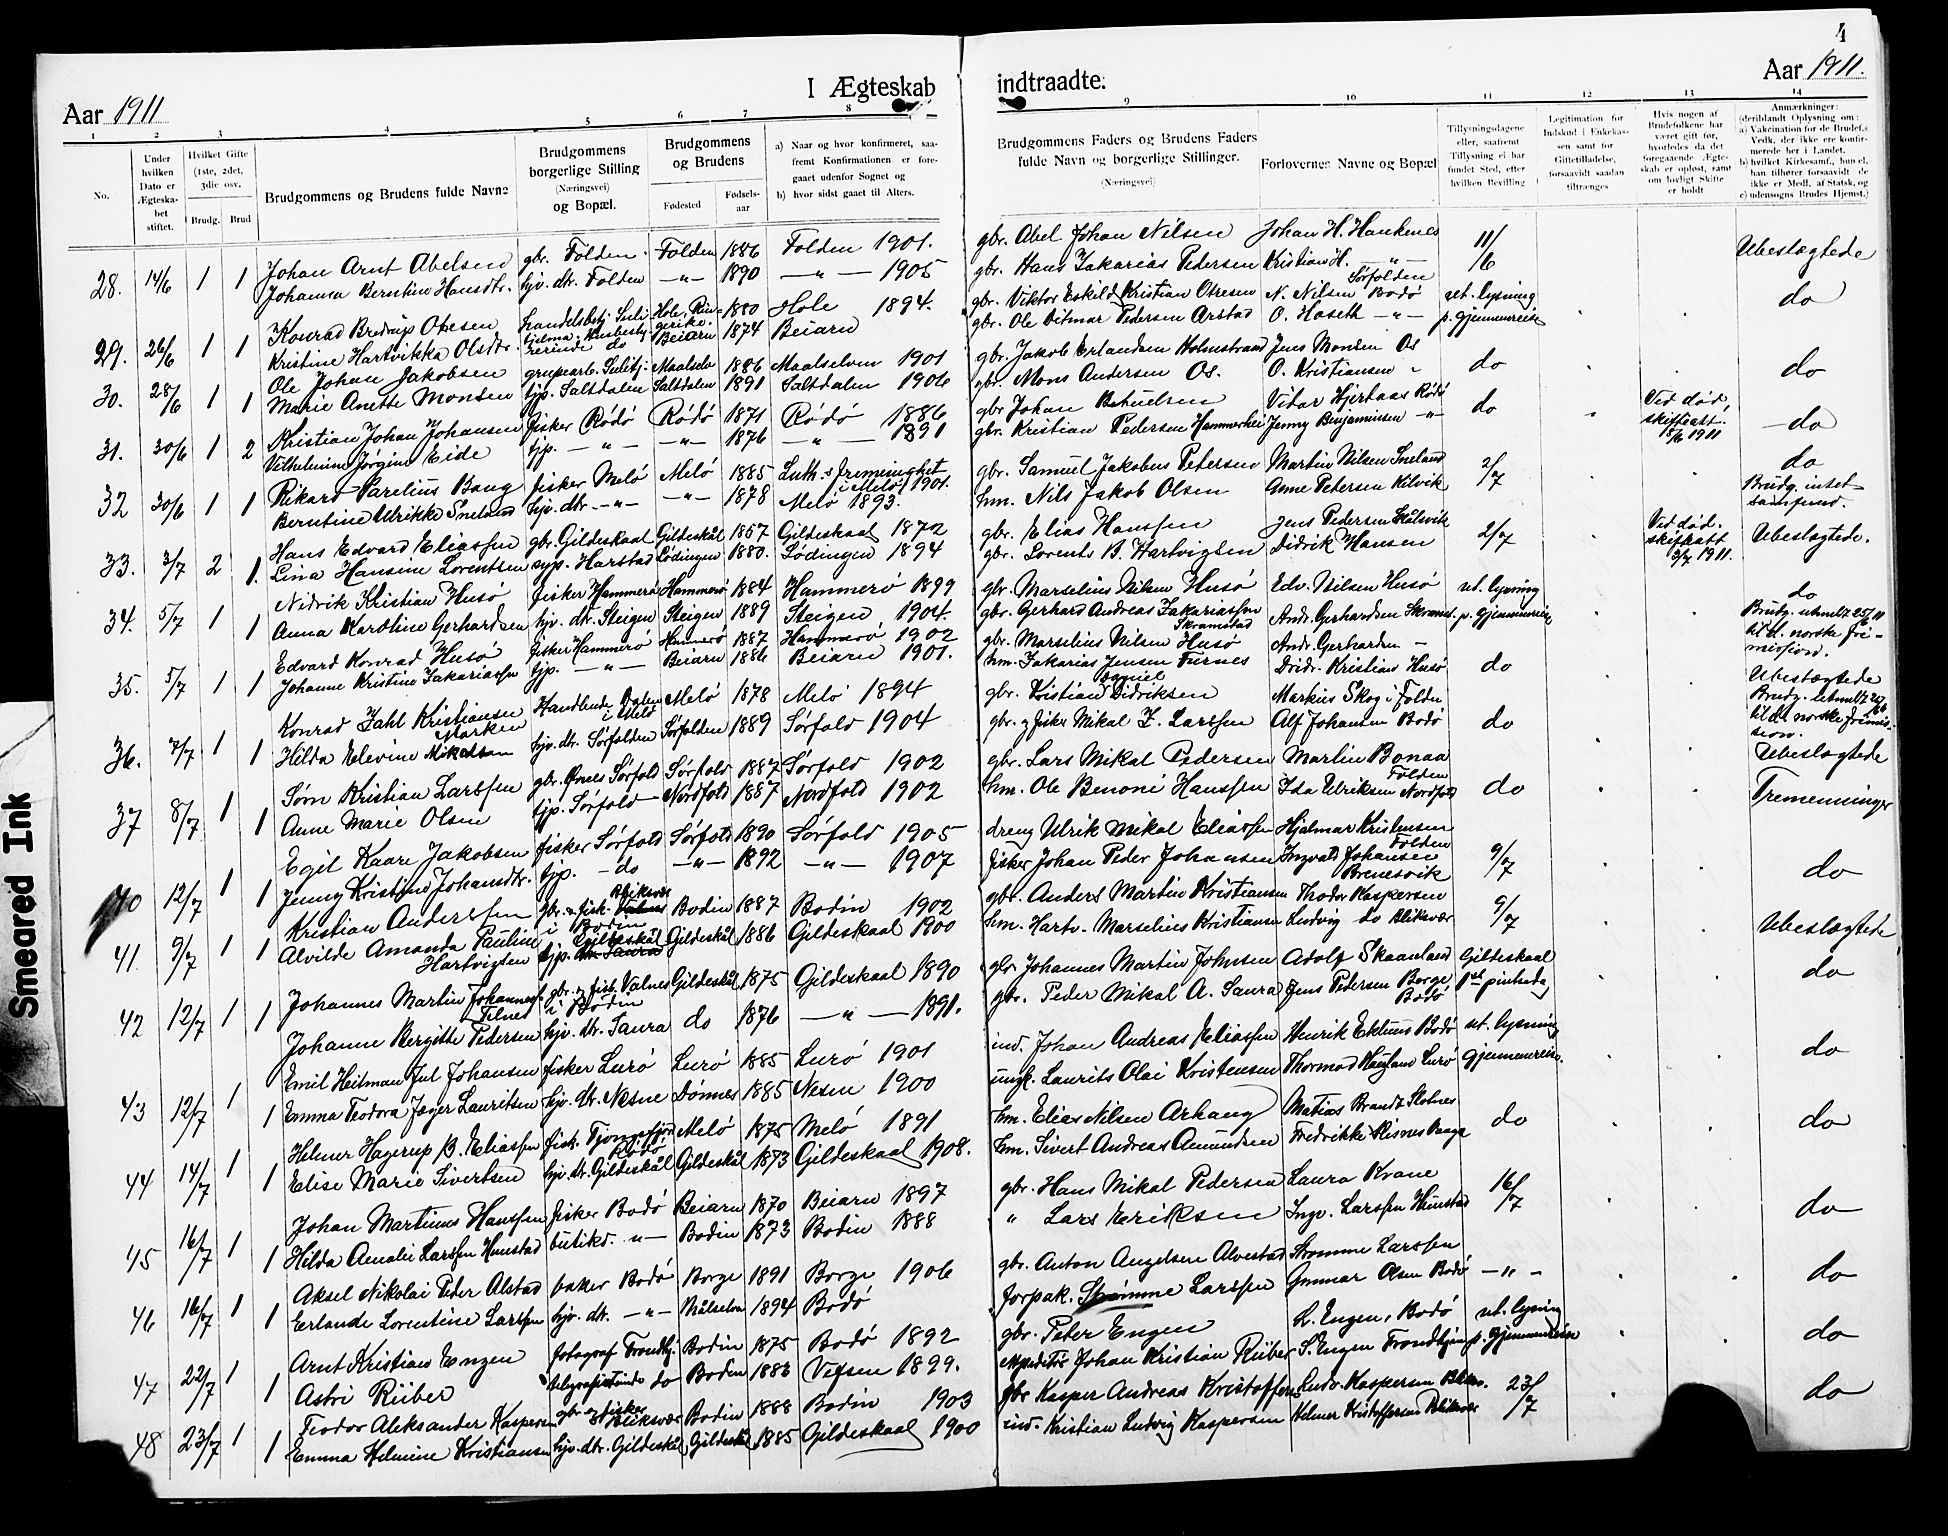 4
Aar 1911
I Ægteskab indtraadte.
Aar 1911.
1 2 3 4 5 6 7 8 9 10 11 12 13 14
No.
Under hvilken Dato er Ægteska-bet stiftet.
Hvilket Gifte (1ste, 2det, 3die osv.
Brudg. Brud
Brudgommens og Brudens fulde Navne
Brudgommens borgerlige Stilling (Næringsvei) og Bopæl.
Brudgommens og Brudens
Fødested
Fødsels-aar
a) Naar og hvor konfirmeret, saa-fremt Konfirmationen er fore-gaaet udenfor Sognet og
b) hvor sidst gaaet til Alters.
Brudgommens Faders og Brudens Faders fulde Navn og borgerlige Stillinger.
(Næringsvei)
Forlovernes Navne og Bopæl
Tillysningsdagene eller, saafremt Tillysning ei har fundet Sted, efter hvilken Bevilling
Legitimation for Indskud i Enkekas-sen samt for Giftetilladelse, forsaavidt saadan tiltrænges
Hvis nogen af Brudefolkene har været gift før, hvorledes da det foregaaende Ægte-skab er opløst, samt om lovligt Skifte er holdt
Anmærkninger: (deriblandt Oplysning om: a) Vakcination for de Brudef.s Vedk. der ikke ere konfir-merede her i Landet, b) hvilket Kirkesamf., hun el. han tilhører forsaavidt de ikke er Medl. af Statsk. og c) udensogns Brudes Hjemst.)
28. 14/6 1 1 Johan Arnt Abelsen gbr. Folden Folden 1886 Folden 1901. gbr. Abel Johan Nilsen Johan H. Hankenes 11/6 Ubeslægtede
Johanna Berntine Hansdtr. hjv. dtr. Folden —„— 1890 —„— 1905 gbr. Hans Zakarias Pedersen Kristian H. —„— Sørfolden
29. 26/6 1 1 Konrad Bredrup Olsen handelsbetj. Suli- Hole, Rin- 1880 Hole 1894. gbr. Viktor Eskild Kristian N. Nilsen Bodø ut. lysning do
Kristine Hartvikka Olsdtr. do Beiarn 1874 Beiarn gbr. Ole Ditmar Pedersen Arstad O. Haseth —„— p. gjennemreise
30. 28/6 1 1 Ole Johan Jakobsen grubearb. Sulitj. Maalselv 1886 Maalselven 1901 gbr. Jakob Erlandsen Holmstrand Jens Monsen Os do do
Marie Anette Monsen tjp. Saltdalen Saltdalen 1891 Saltdalen 1906 gbr. Mons Andersen Os. O. Kristiansen
31. 30/6 1 2 Kristian Johan Johansen fisker Rødø Rødø 1871 Rødø 1886 gbr. Johan Vidar Hjertaas Rødø do Ved død, skiftatt. 15/6 1911 do
Vilhelmine Jørgine Eide tjp. —„— —„— 1876 —„— 1891 gbr. Kristian Pedersen Jenny Benjaminsen —„—
32 30/6 1 1 Rikard Parelius Bang fisker Melø Melø 1885 Luth. frimenighet i Melø 1901. gbr. Samuel Jakobus Petersen Martin Nilsen Sneland 2/7 do
Berntine Ulrikke Sneland hjv. dtr. —„— —„— 1878 Melø 1893. hm. Nils Jakob Olsen Anne Petersen Kilvik Brudg. intet samfund.
33. 3/7 2 1. Hans Edvard Eliassen gbr. Gildeskaal Gildeskål 1857 Gildeskaal 1872 gbr. Elias Hanssen Jens Pedersen 2/7 Ved død. skifteatt 3/7 1911. Ubeslægtede.
Lina Hansine Lorentsen syp. Harstad Lødingen 1880. Lødingen 1894 gbr. Lorents B. Hartvigsen Didrik Hansen
34. 5/7 1 1 Didrik Kristian Husø fisker Hammerø Hammerø 1884 Hammerø 1899 gbr. Marselius Nilsen Husø Edv. Nilsen Husø ut. lysning do
Anna Karoline Gerhardsen hjv. dtr. Steigen Steigen 1889 Steigen 1904. gbr. Gerhard Andreas Zakariassen Skramstad Andr. Gerhardsen Skramst. p. gjennemreise Brudg. utmeldt 25/6 11 til d. norske fri-mission.
35. 5/7 1 1 Edvard Konrad Husø fisker Hammerø Hammerø 1887 Hammerø 1902 gbr. Marselius Nilsen Husø Andr. Gerhardsen — do Ubeslægtede
Johanne Kristine Zakariassen tjp. —„— Beiarn 1886 Beiarn 1901. hm. Zakarias Jensen Furnes Didr. Kristian Husø
36. 7/7 1 1 Konrad Dahl Kristiansen Marken Handlende i Melø Melø 1878 Melø 1894 gbr. Kristian Daniel Didriksen Markus Skog i Folden do
Hilda Elevine Mikalsen hjv. dtr. Sørfolden Sørfolden 1889 Sørfold 1904 gbr. & fisker Mikal Z. Larssen Alf Johansen Bodø
37 8/7 1 1 Sørn Kristian Larssen gbr. Ørnes Sørfold Sørfold 1887 Sørfold 1902 gbr. Lars Mikal Pedersen Martin Bonaa Folden do Ubeslægtede
Anne Marie Olsen tjp. Sørfold Nordfold 1887 Nordfold 1902 hm. Ole Benoni Hanssen Ida Ulriksen Nordfold Tremenninger
40 12/7 1 1 Egil Kaare Jakobsen fisker Sørfold Sørfold 1890 Sørfold 1905 dreng Ulrik Mikal Eliassen Hjalmar Kristensen Folden 9/7 do
Jenny Kristine Johansdtr. tjp. — do —„— 1892 —„— 1907 fisker Johan Peder Johansen Ingvald Johansen
41. 9/7 1 1 Kristian Anderssen gbr. & fisk. Bliksvær i Bodin Bodin 1887 Bodin 1902 gbr. Anders Martin Kristiansen Thodor Kaspersen 9/7 Ubeslægtede
Alvilde Amanda Pauline Hartvigsen tjp. Gildeskål Gildeskål 1886 Gildeskaal 1900 hm. Hartv. Marselius Kristiansen Ludvig do Bliksvær
42 12/7 1 1 Johannes Martin Johannes. gbr. & fisk. Valnes i Bodin Gildeskål 1875 Gildeskaal 1890 gbr. Johannes Martin Johnsen Adolf Skaanland Gildeskaal do
Johanne Bergitte Pedersen hjv. dtr. Saura do 1876 —„— 1891. gbr. Peder Mikal A. Saura Jens Pedersen Borge Bodø 1ste pintsedag
43 12/7 1 1 Emil Heitman Jul Johansen fisker Lurø Lurø 1885 Lurø 1901 ind. Johan Andreas Eliassen Henrik Eklund Bodø ut. lysning do
Emma Teodora Jæger Lauritsen hjv. dtr. Nesne Dønnes 1885 Nesne 1900 ungk. Laurits Olai Kristensen Thormod Haugland Lurø gjennemreise.
44 14/7 1 1 Helmer Hagerup B. Eliassen fisk. Tjongsfjord Rødø Melø 1875 Melø 1891 hm. Elias Nilsen Arhaug Matias Brandt do do
Elise Marie Sivertsen hjv. dtr. Gildeskål Gildeskål 1873 Gildeskaal 1908. hm. Sivert Andreas Amundsen Fredrikke
45 16/7 1 1 Johan Martinus Hanssen fisker Bodø Beiarn 1870 Beiarn 1897 gbr. Hans Mikal Pedersen Laura Krane 16/7 do
Hilda Amalie Larssen Hunstad butikd. „— Bodin 1873 Bodin 1888 „ Lars Eriksen Ingv. Larssen Hunstad
46 16/7 1 1 Aksel Nikolai Peder Alstad baker Bodø Borge 1891 Borge 1906 gbr. Anton Angelsen Alvestad Strømme Larssen —„— do
Erlande Lorentine Larssen hjv. dtr. —„— Målselv 1894 Bodø forpak. Strømme Larssen Gunnar Olsen Bodø
47 22/7 1 1 Arnt Kristian Engen fotograf Trondhj. Bodin 1875 Bodø 1892 gbr. Peter Engen L. Engen, Bodø ut. lysning do
Astri Riiber telegrafistinde do Bodin 1883 Vefsen 1899. ekspeditør Johan Kristian Riiber S. Engen Trondhjem p. gjennemreise
48 23/7 1 1 Teodor Aleksander Kaspersen gbr. & fisker Bliksvær Bodin 1888 Bodin 1903 gbr Kasper Andreas Kristoffers. Ludv. Kaspersen 23/7 do
Emma Helmine Kristiansen hjv. dtr. Gildeskål Gildeskål 1885 Gildeskaal 1900 ind. Kristian Ludvig Kaspersen Helmer Kristoffersen Bliksvær
Smeared Ink